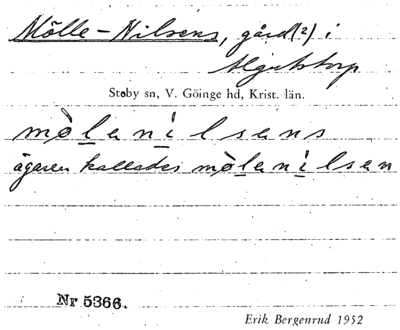 Mölle-Nilsens, gård(2) i
Algutstorp
Stoby sn, V. Göinge hd, Krist. län.
mòlenìlsens
ägaren kallades mòlenìlsen
Nr 5366.
Erik Bergenrud 1952